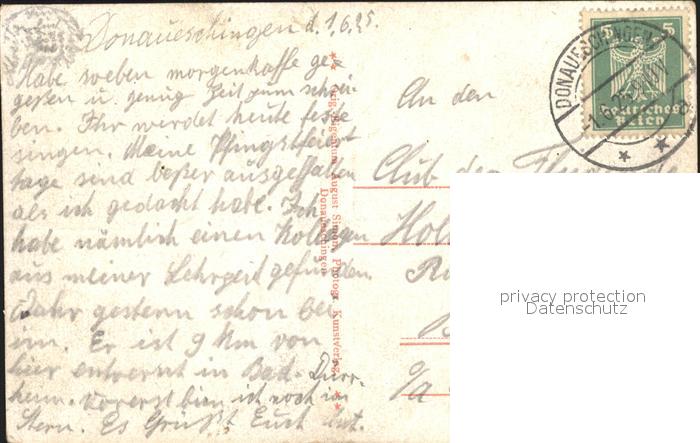 Donaueschingen d. 1.6.25.
Habe soeben morgenkaffe ge-
geßen u. genug Zeit zum schrei
ben. Ihr werdet heute feste
singen. Meine Pfingstfeier
tage send beßer ausgefallen
als ich gedacht habe. Ich
habe nämlich einen Kollegen
aus meiner Lehrzeit gefunden
Fahr gestern schon bei
im. Er ist 9 km von
hier entvernt in Bad-Dürr-
heim. vorerst bin ich noch im
Stern. Es Grüßt Euch
Orig. Eigentum August Simon, Photogr. Kunstverlag
Donaueschingen
An den
Club der
Hol
c/a
5 5
Deutsches
Reich
DONAUESCHINGEN
1.6.25
privacy protection
Datenschutz